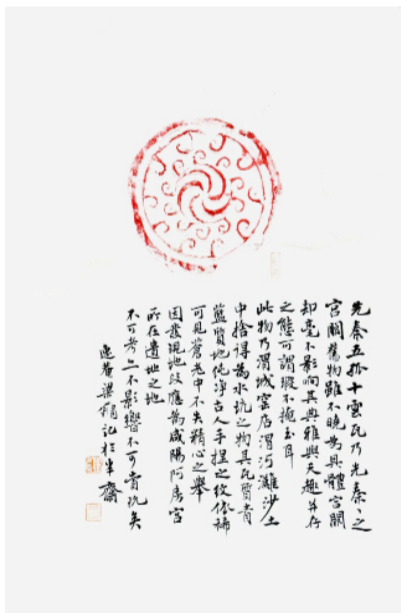 先秦五弧十雲瓦乃先秦、之
宮闕舊物雖不曉為具體宮闕
却毫不影响其典雅與天趣并存
之態可謂瑕不掩玉耳
此物乃渭城窑店渭河灘沙土
中捨得為水坑之物其瓦質青
藍質地纯净古人手捏之紋依稀
可見蒼老中不失精心之舉
因發現地段應為咸陽阿房宮
所在遺地之地
不可考二不影響不可
記於半齋